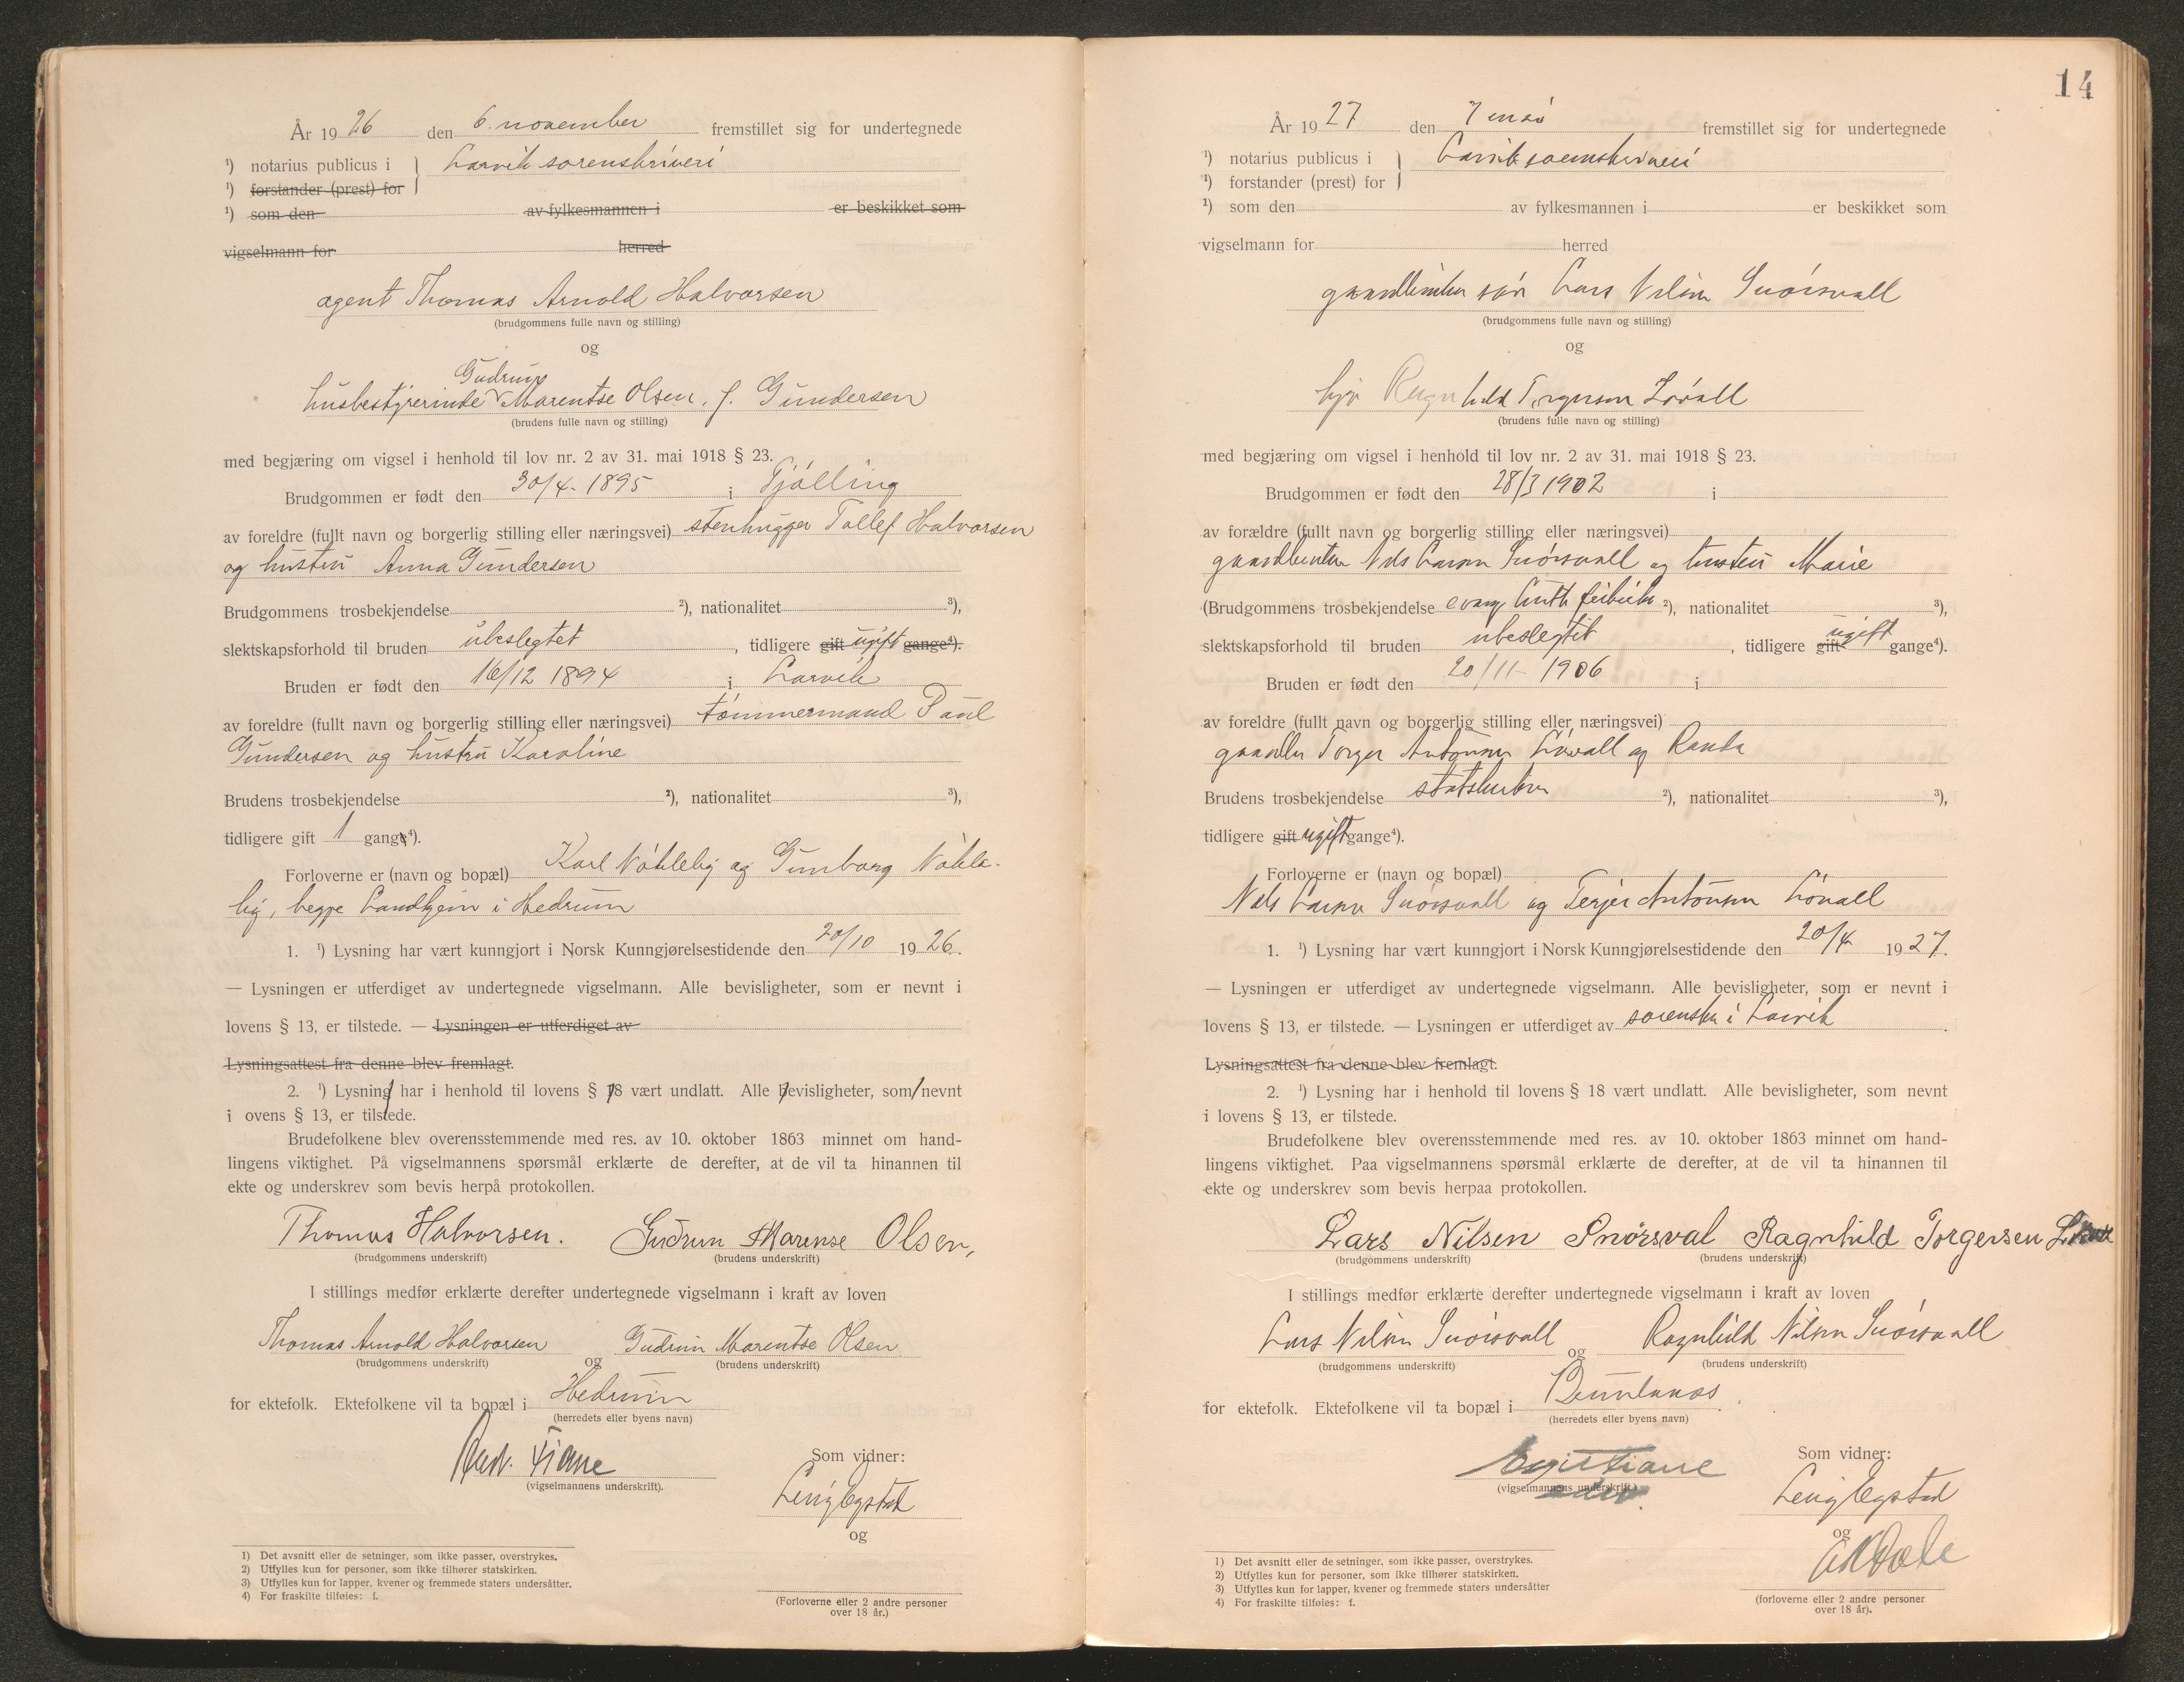 År 19 26 den 6. november fremstillet sig for undertegnede
¹) notarius publicus i } Larvik sorenskriveri
¹) forstander (prest) for
¹) som den av fylkesmannen i er beskikket som
vigselmann for herred
agent Thomas Arnold Halvorsen
(brudgommens fulle navn og stilling)
og
Gudrun
husbestyrerinde Marentse Olsen, f. Gundersen
(brudens fulle navn og stilling)
med begjæring om vigsel i henhold til lov nr. 2 av 31. mai 1918 § 23.
Brudgommen er født den 30/4- 1895 i Tjølling
av foreldre (fullt navn og borgerlig stilling eller næringsvei) stenhugger Tollef Halvorsen
og hustru Anna Gundersen
Brudgommens trosbekjendelse ²), nationalitet ³),
slektskapsforhold til bruden ubeslegtet, tidligere gift ugift gange⁴).
Bruden er født den 16/12 1894 i Larvik
av foreldre (fullt navn og borgerlig stilling eller næringsvei) tømmermand Paul
Gundersen og hustru Karoline
Brudens trosbekjendelse ²), nationalitet ³),
tidligere gift 1 gange⁴).
Forloverne er (navn og bopæl) Karl Nøkleby og Gunborg Nøkle-
by, begge Landhjem i Hedrum
1. ¹) Lysning har vært kunngjort i Norsk Kunngjørelsestidende den 20/10 19 26.
— Lysningen er utferdiget av undertegnede vigselmann. Alle bevisligheter, som er nevnt i
lovens § 13, er tilstede. — Lysningen er utferdiget av
Lysningsattest fra denne blev fremlagt.
2. ¹) Lysning har i henhold til lovens § 18 vært undlatt. Alle bevisligheter, som nevnt
i ovens § 13, er tilstede.
Brudefolkene blev overensstemmende med res. av 10. oktober 1863 minnet om hand-
lingens viktighet. På vigselmannens spørsmål erklærte de derefter, at de vil ta hinannen til
ekte og underskrev som bevis herpå protokollen.
Thomas Halvorsen. Gudrun Marense Olsen,
(brudgommens underskrift) (brudens underskrift)
I stillings medfør erklærte derefter undertegnede vigselmann i kraft av loven
Thomas Arnold Halvorsen og Gudrun Marentse Olsen
(brudgommens underskrift) (brudens underskrift)
for ektefolk. Ektefolkene vil ta bopæl i Hedrum
(herredets eller byens navn)
Tiane
(vigselmannens underskrift).
Som vidner:
og
1) Det avsnitt eller de setninger, som ikke passer, overstrykes.
2) Utfylles kun for personer, som ikke tilhører statskirken.
3) Utfylles kun for lapper, kvener og fremmede staters undersåtter.
4) For fraskilte tilføies: f.
(Forloverne eller 2 andre personer
over 18 år.)
14
År 19 27 den 7 mai fremstillet sig for undertegnede
¹) notarius publicus i } Larvik sorenskriveri
¹) forstander (prest) for
¹) som den av fylkesmannen i er beskikket som
vigselmann for herred
gaardbruker søn Lars Nilsen Snørsvall
(brudgommens fulle navn og stilling)
og
Ragnhild Torgersen Løvall
(brudens fulle navn og stilling)
med begjæring om vigsel i henhold til lov nr. 2 av 31. mai 1918 § 23.
Brudgommen er født den 28/3 1902 i
av forældre (fullt navn og borgerlig stilling eller næringsvei)
gaardbruker Nils Larsen Snørsvall og hustru Marie
(Brudgommens trosbekjendelse evang luth frikirke ²), nationalitet ³),
slektskapsforhold til bruden ubeslegtet, tidligere gift ugift gange⁴).
Bruden er født den 20/11- 1906 i
av foreldre (fullt navn og borgerlig stilling eller næringsvei)
gaardbr Torger Antonsen Løvall og
Brudens trosbekjendelse statskirken ²), nationalitet ³),
tidligere gift ugift gange⁴).
Forloverne er (navn og bopæl)
Nils Larsen Snørsvall og Terjer Antonsen Løvall
1. ¹) Lysning har vært kunngjort i Norsk Kunngjørelsestidende den 20/4 19 27.
— Lysningen er utferdiget av undertegnede vigselmann. Alle bevisligheter, som er nevnt i
lovens § 13, er tilstede. — Lysningen er utferdiget av sorenskr i Larvik.
Lysningsattest fra denne blev fremlagt.
2. ¹) Lysning har i henhold til lovens § 18 vært undlatt. Alle bevisligheter, som nevnt
i lovens § 13, er tilstede.
Brudefolkene blev overensstemmende med res. av 10. oktober 1863 minnet om hand-
lingens viktighet. Paa vigselmannens spørsmål erklærte de derefter, at de vil ta hinannen til
ekte og underskrev som bevis herpaa protokollen.
Lars Nilsen Snørsval Ragnhild Torgersen
(brudgommens underskrift) (brudens underskrift)
I stillings medfør erklærte derefter undertegnede vigselmann i kraft av loven
Lars Nilsen Snørsvall og Ragnhild Nilsen Snørsvall
(brudgommens underskrift) (brudens underskrift)
for ektefolk. Ektefolkene vil ta bopæl i Brunlanes.
(herredets eller byens navn)
(vigselmannens underskrift)
Som vidner:
og
1) Det avsnitt eller de setninger, som ikke passer, overstrykes.
2) Utfylles kun for personer, som ikke tilhører statskirken.
3) Utfylles kun for lapper, kvener og fremmede staters undersåtter
4) For fraskilte tilføies: f.
(forloverne eller 2 andre personer
over 18 år).